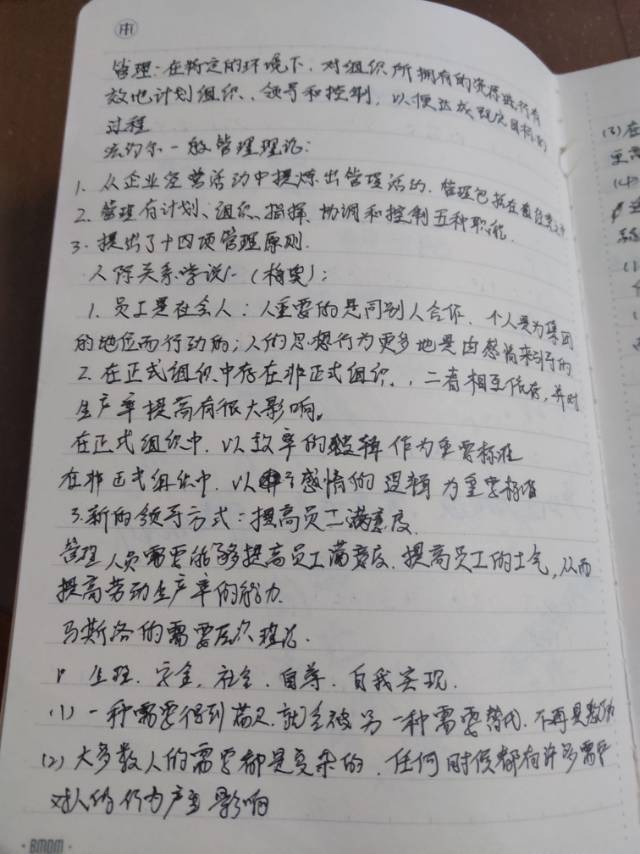 管理:在特定的环境下,对组织所拥有的资源进行有
效地计划组织、领导和控制,以便达成既定目标的
过程
法约尔一般管理理论:
1. 从企业经营活动中提炼出管理活动,管理包括在
2. 管理有计划、组织、指挥、协调和控制五种职能,
3. 提出了十四项管理原则.
人际关系学说(梅奥):
1. 员工是社会人:人重要的是同别人合作,个人是为集团
的地位而行动的;人的思想行为更多地是由感情来引导的
2. 在正式组织中存在非正式组织,二者相互依存,并对
生产率提高有很大影响。
在正式组织中,以效率的逻辑作为重要标准
在非正式组织中,以感情的逻辑为重要标准
3. 新的领导方式:提高员工满意度.
管理人员需要能够提高员工满意度,提高员工的士气,从而
提高劳动生产率的能力
马斯洛的需要层次理论.
1' 生理、安全、社会、自尊、自我实现.
(1) 一种需要得到满足,就会被另一种需要替代,不再具
(2) 大多数人的需要都是复杂的,任何时候都有许多需要
对人的行为产生影响
BMDM
(3) 在
(4)
(1)